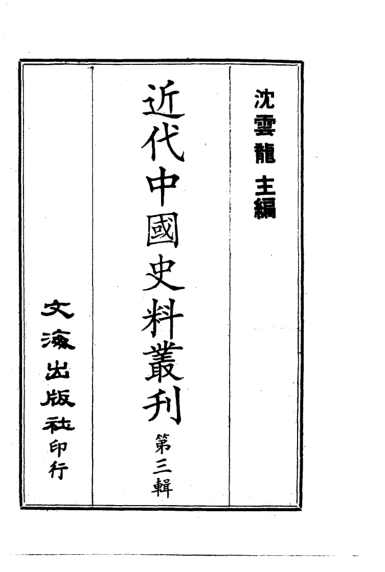 沈雲龍 主編
近代中國史料叢刊 第三輯
文海出版社印行